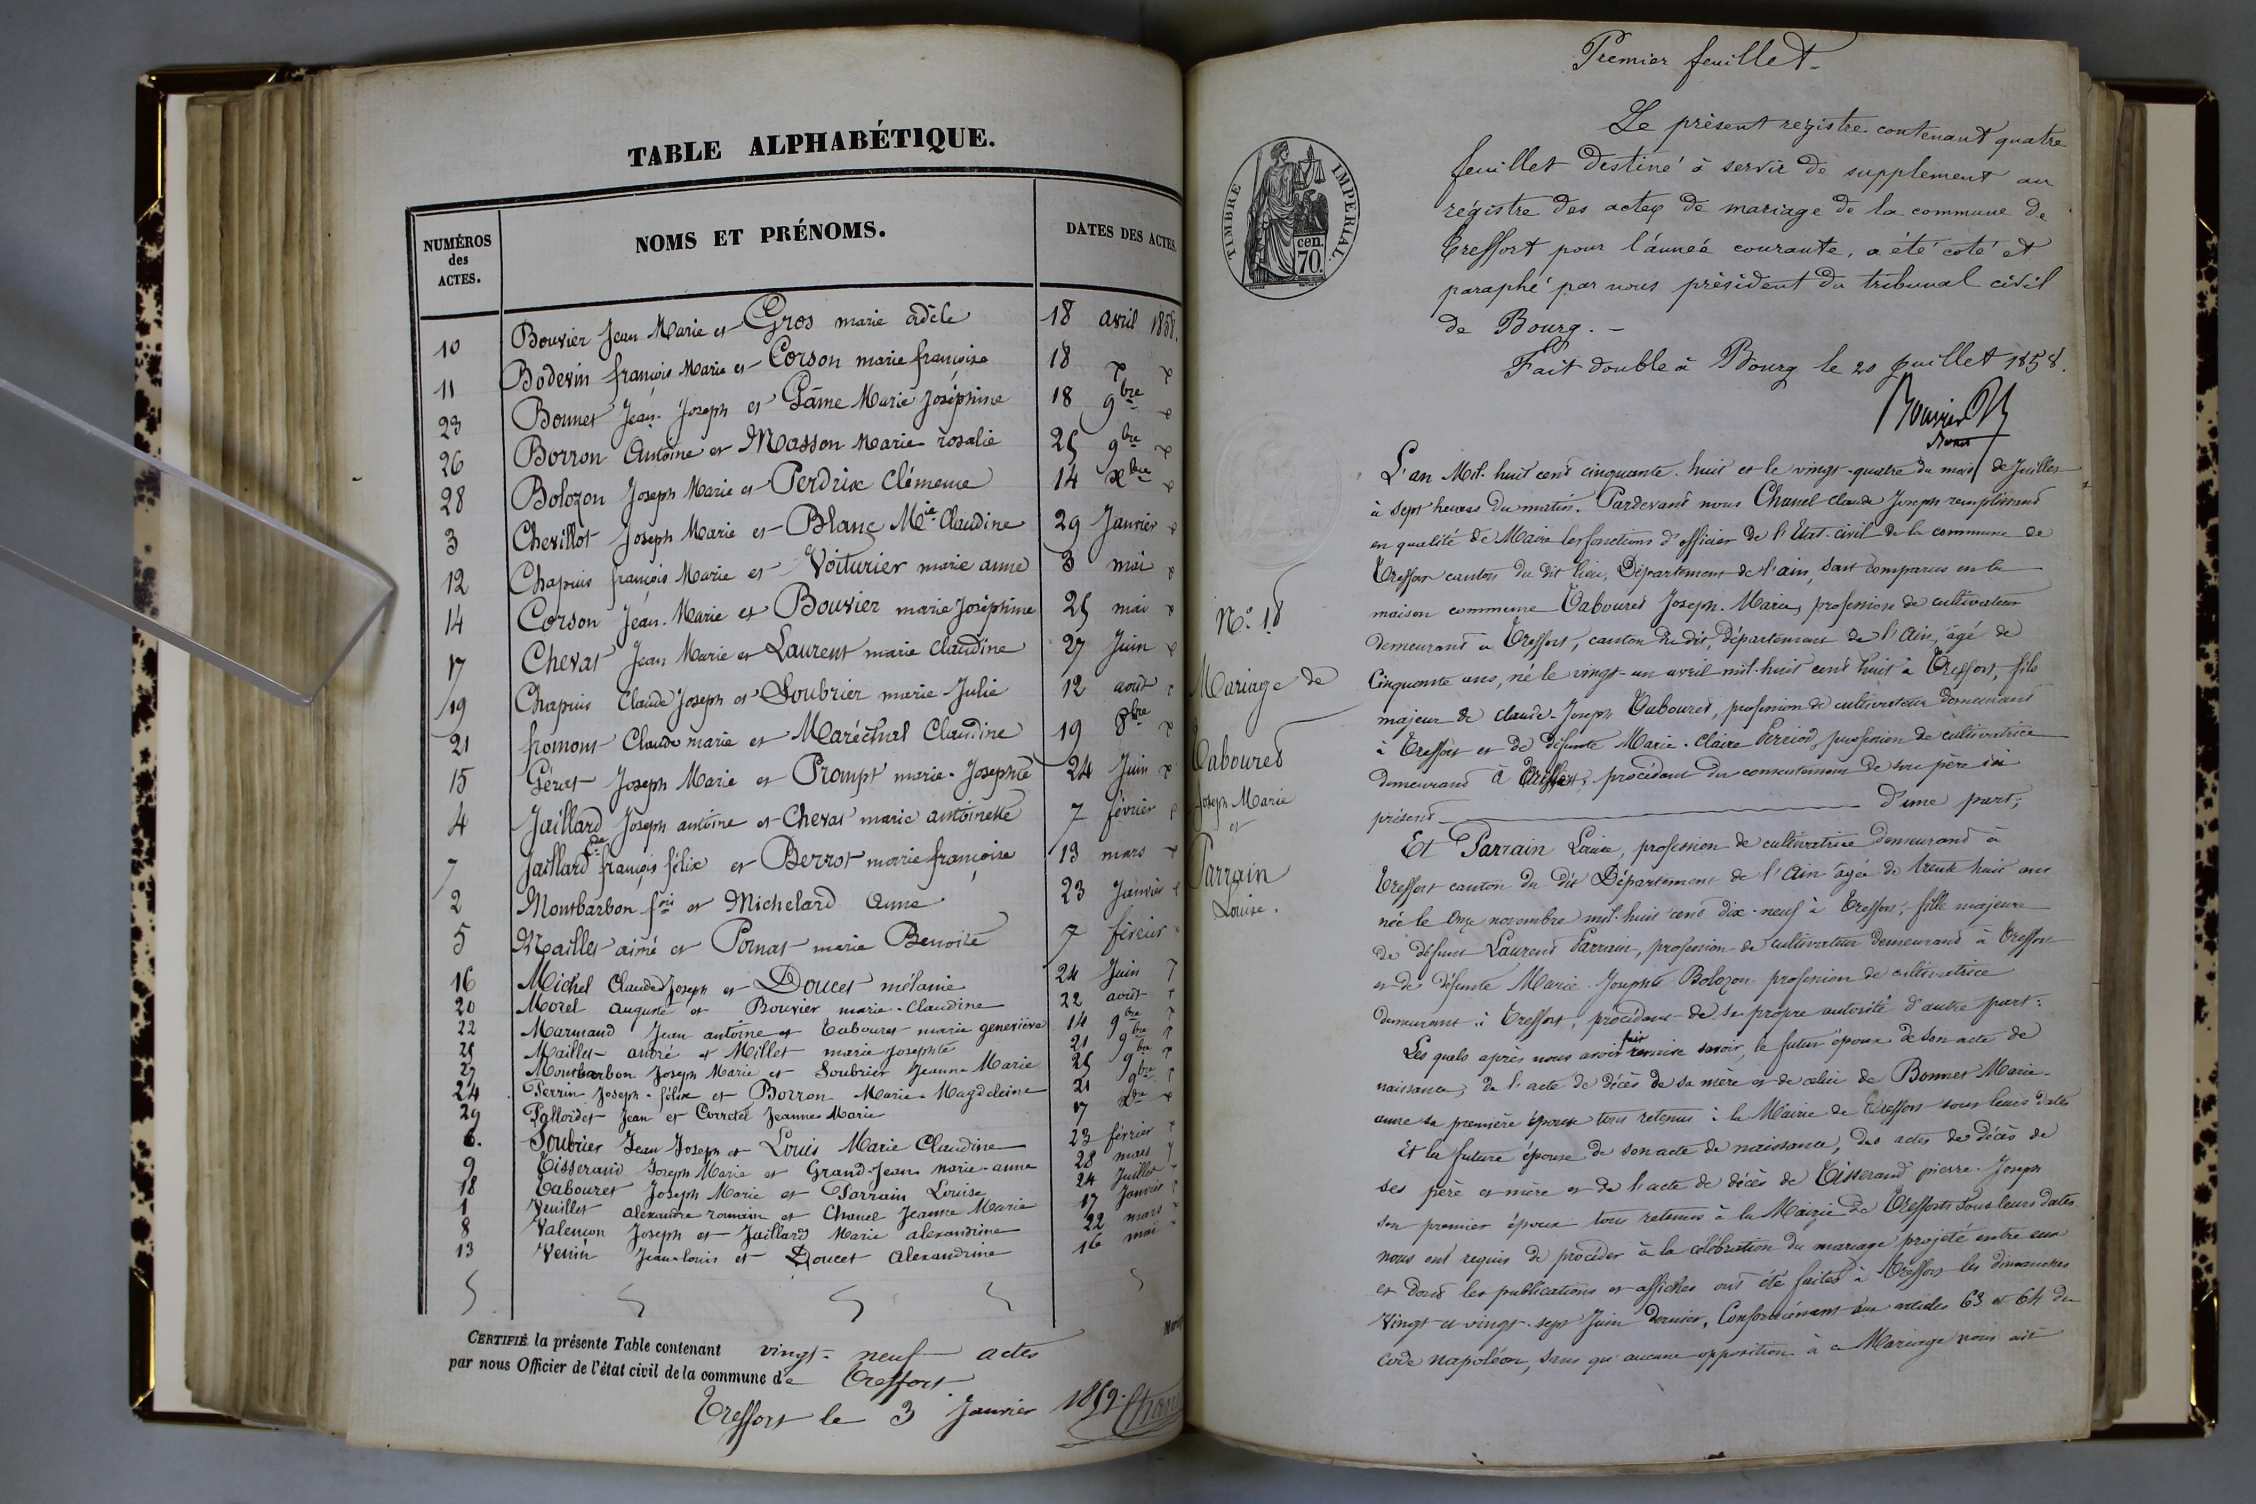 TABLE ALPHABÉTIQUE.
NUMÉROS des ACTES. NOMS ET PRÉNOMS. DATES DES ACTES
10 Bouvier Jean Marie et Gros marie adèle 18 avril 1858.
11 Bodevin françois Marie et Corson marie françoise 18
23 Bonnet Jean-Joseph et Pâme Marie Joséphine 18 9bre
26 Borron Antoine et Masson Marie rosalie 25 9bre
28 Bolozon Joseph Marie et Perdrix Clémence 14 Xbre
3 Chevillot Joseph Marie et Blanc Mie Claudine 29 Janvier
12 Chapuis françois Marie et Voiturier marie anne 3 mai
14 Corson Jean-Marie et Bouvier marie Joséphine 25 mai
17 Chevat Jean Marie et Laurent marie Claudine 27 Juin
19 Chapuis Claude Joseph et Soubrier marie Julie 12 août
21 fromont Claude marie et Maréchal Claudine 19 8bre
15 Géret Joseph Marie et Prompt marie-Josephte 24 Juin
4 Jaillard Joseph antoine et Chevat marie antoinette 7 février
7 Jaillard françois félix et Berrot marie françoise 13 mars
2 Montbarbon fois et Michelard Anne 23 Janvier
5 Maillet aimé et Pomat marie Benoite 7 février
16 Michel Claude Joseph et Doucet mélanie 24 Juin
20 Morel auguste et Bouvier marie-Claudine 22 août
22 Marmand Jean antoine et Tabouret marie geneviève 14 9bre
25 Maillet andré et Millet marie Josephte 21 9bre
27 Montbarbon Joseph Marie et Soubrier Jeanne Marie 25 9bre
24 Perrin Joseph-félix et Borron Marie-Magdeleine 21 9bre
29 Palloidet Jean et Corretel Jeanne Marie 17 Xbre
6. Soubrier Jean Joseph et Louis Marie Claudine 23 février
9 Tisserand Joseph Marie et Grand-Jean marie-anne 28 mars
18 Tabouret Joseph Marie et Parrain Louise 24 Juillet
1 Veuillet alexandre romain et Chanel Jeanne Marie 17 Janvier
8 Valençon Joseph et Jaillard Marie alexandrine 22 mars
13 Venin Jean-louis et Doucet alexandrine 16 mai
CERTIFIÉ la présente Table contenant vingt-neuf actes
par nous Officier de l'état civil de la commune de Treffort
Treffort le 3 Janvier 1859.
Premier feuillet.
TIMBRE IMPÉRIAL.
cen.
70.
Le présent régistre contenant quatre
feuillet destiné à servir de supplement au
régistre des actes de mariage de la commune de
Treffort pour l'année courante, a été coté et
paraphé par nous président du tribunal civil
de Bourg. -
Fait double à Bourg le 20 Juillet 1858.
L'an Mil-huit cent cinquante-huit et le vingt-quatre du mois de Juillet
à sept heures du matin. Pardevant nous Chanel Claude Joseph remplissant
en qualité de Maire les fonctions d'officier de l'Etat-civil de la commune de
Treffort canton du dit lieu, Département de l'ain, sont comparus en la
maison commune Tabouret Joseph-Marie, profession de cultivateur
demeurant à Treffort, canton du dit, département de l'Ain, âgé de
Cinquante ans, né le vingt-un avril mil-huit cent huit à Treffort, fils
majeur de Claude-Joseph Tabouret, profession de cultivateur demeurant
à Treffort et de défunte Marie-Claire Perriod, profession de cultivatrice
demeurant à Treffort, procédant du consentement de son père ici
présent d'une part;
N° 18
Mariage de
Tabouret
Joseph Marie
et
Parrain
Louise.
Et Parrain Louise, profession de cultivatrice demeurant à
Treffort canton du dit Département de l'Ain âgée de trente huit ans
née le onze novembre mil-huit cent dix-neuf à Treffort, fille majeure
de défunt Laurent Parrain, profession de cultivateur demeurant à Treffort
et de défunte Marie-Josephte Bolozon profession de cultivatrice
demeurant à Treffort, procédant de sa propre autorité d'autre part:
Les quels après nous avoir fait remise savoir, le futur époux de son acte de
naissance, de l'acte de décès de sa mère et de celui de Bonnet Marie-
anne sa première épouse tous retenus à la Mairie de Treffort sous leurs dates
Et la future épouse de son acte de naissance, des actes de décès de
ses père et mère et de l'acte de décès de Tisserand pierre-Joseph
son premier époux tous retenus à la Mairie de Treffort sous leurs dates
nous ont requis de procéder à la célébration du mariage projeté entre eux
et dont les publications et affiches ont été faites à Treffort les dimanches
Vingt et vingt-sept Juin dernier, Conformément aux articles 63 et 64 du
Code Napoléon, sans qu'aucune opposition à ce Mariage nous ait